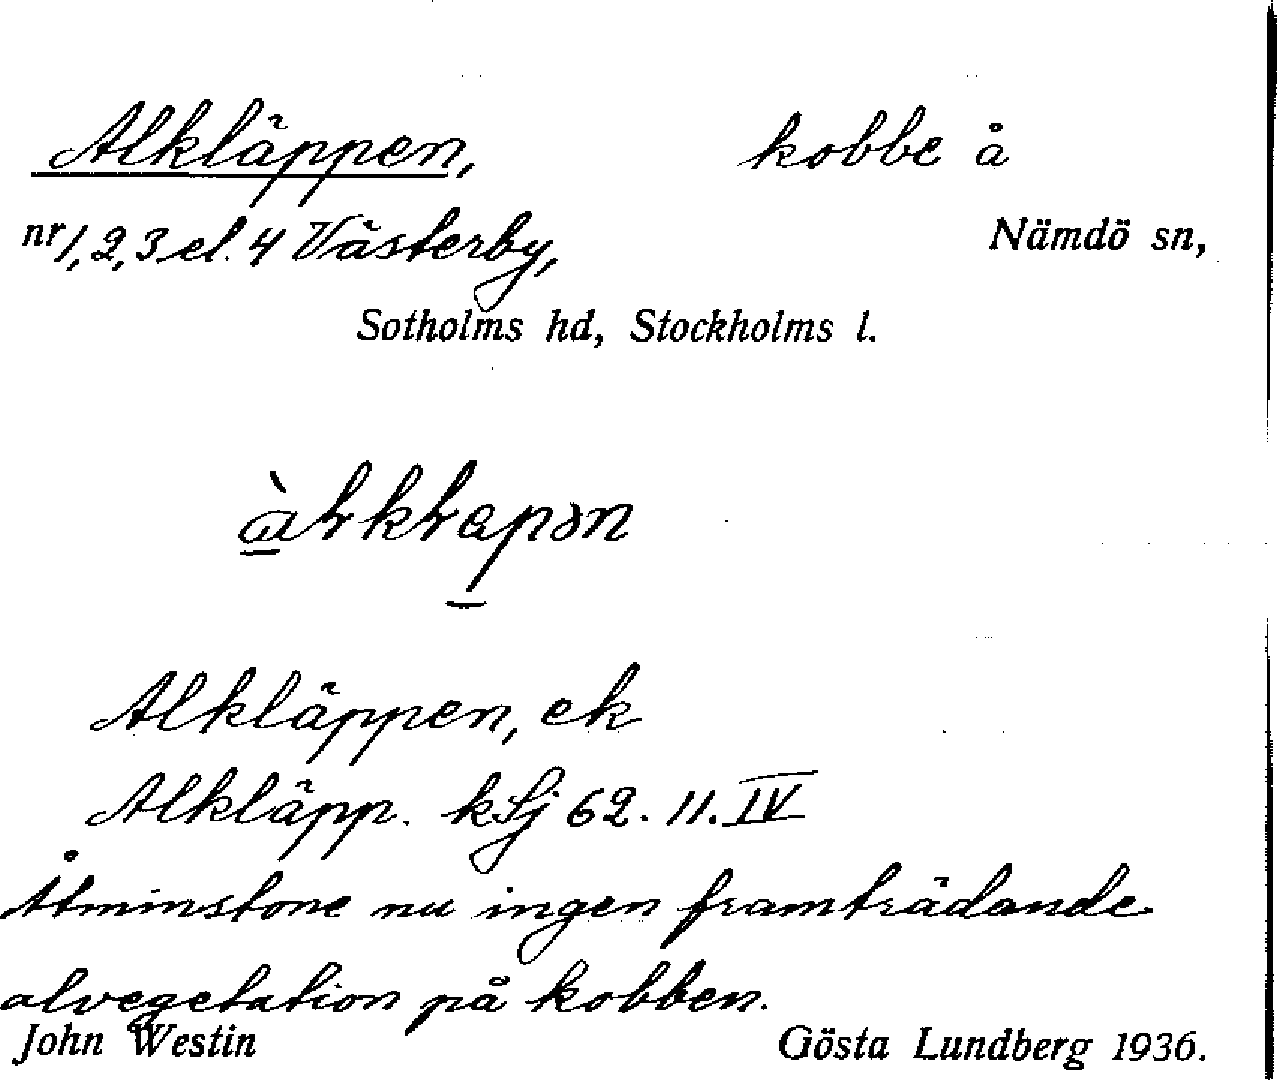 Alkläppen, kobbe å
nr 1, 2, 3 el. 4 Västerby, Nämdö sn,
Sotholms hd, Stockholms l.
Alkläppen, ek
Alkläpp. kSj 62. 11. IV
Åtminstone nu ingen framträdande
alvegetation på kobben.
John Westin Gösta Lundberg 1936.